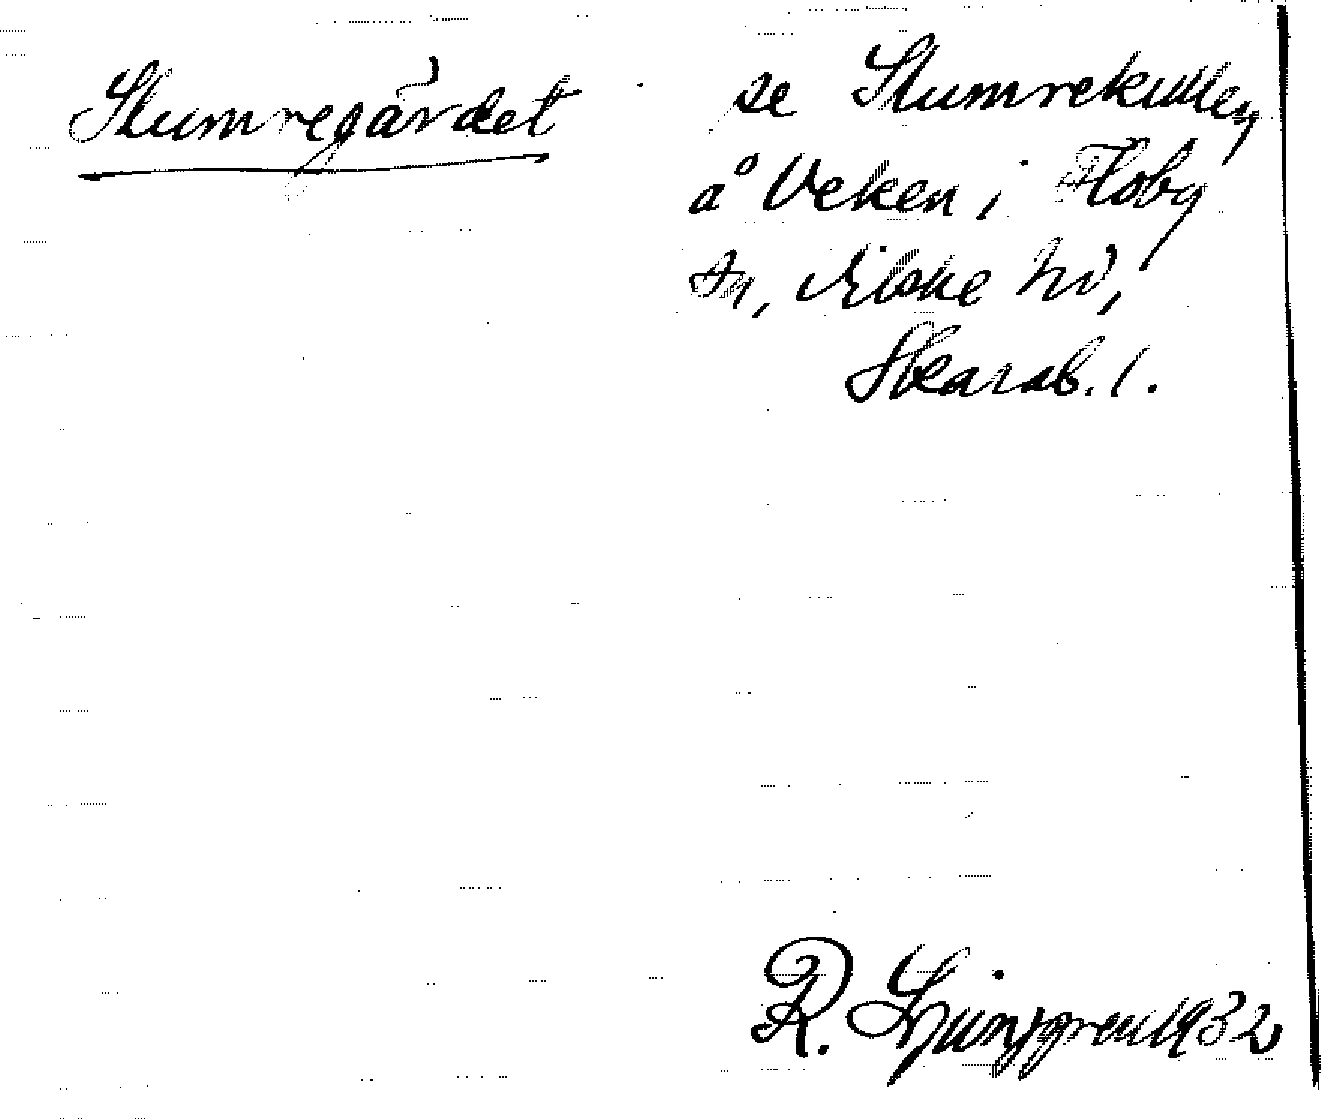 Slumregärdet
se Slumrekullen
å Veken i Floby
sn, Vilske hd,
Skarab. l.
R. Ljunggren 1932